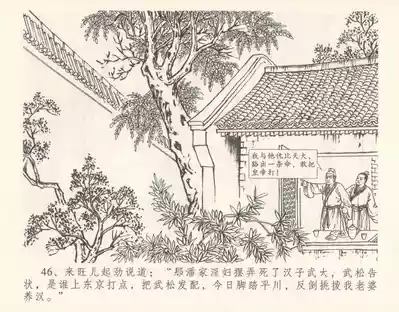 我与他休比天大，
豁出一条命，敢把
皇帝打！
46、来旺儿起劲说道：“那潘家淫妇摆弄死了汉子武大，武松告
状，是谁上东京打点，把武松发配，今日脚踏平川，反倒挑拨我老婆
养汉。”